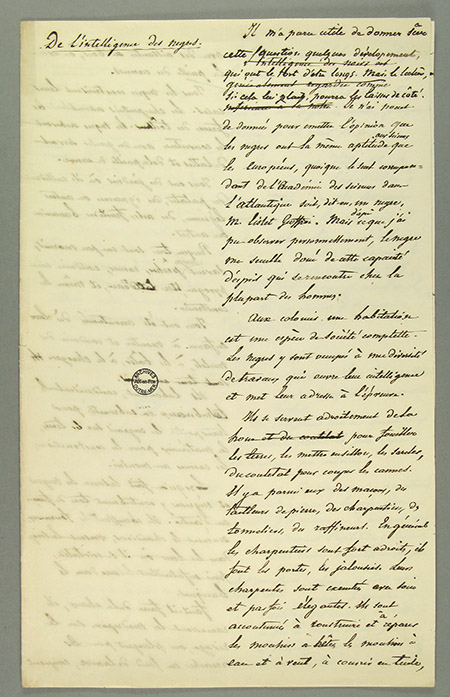 De l'intelligence des negres.
Il m'a paru utile de donner sur
cette question quelques développemens,
l'Intelligence des noirs est
qui ont le tort d'être longs. Mais le lecteur,
generalement regardée comme
si cela lui plait, pourra les laisser de côté.
inférieure à la notre. Je n'ai point
de donnée pour emettre l'opinion que
les negres ont la même aptitude que
les Européens, quoique le seul correspon-
dant de l'Académie des sciences dans
l'atlantique soit, dit-on, un negre,
Mr. Lislet Geffroi. Mais d'après ce que j'ai
pu observer personnellement, le negre
me semble doué de cette capacité
d'esprit qui se rencontre chez la
plupart des hommes.
Aux colonies une habitation
est une espèce de société complette.
Les negres y sont occupés à une diversité
de travaux qui ouvre leur intelligence
et met leur adresse à l'épreuve.
Ils se servent adroitement de la
houe et du coutelat pour fouiller
les terres, les mettre en sillon, les sarcler,
du coutelat pour couper les cannes.
Il y a parmi eux des maçons, des
tailleurs de pierre, des charpentiers, des
tonneliers, des raffineurs. En général
les charpentiers sont fort adroits, ils
font les portes, les jalousies. Leurs
charpentes sont executées avec soin
et parfois élégantes. Ils sont
accoutumés à construire et à réparer
les moulins à bêtes, les moulins à
eau et à vent, à couvrir en tuile,
ARCHIVES
OUTRE-MER